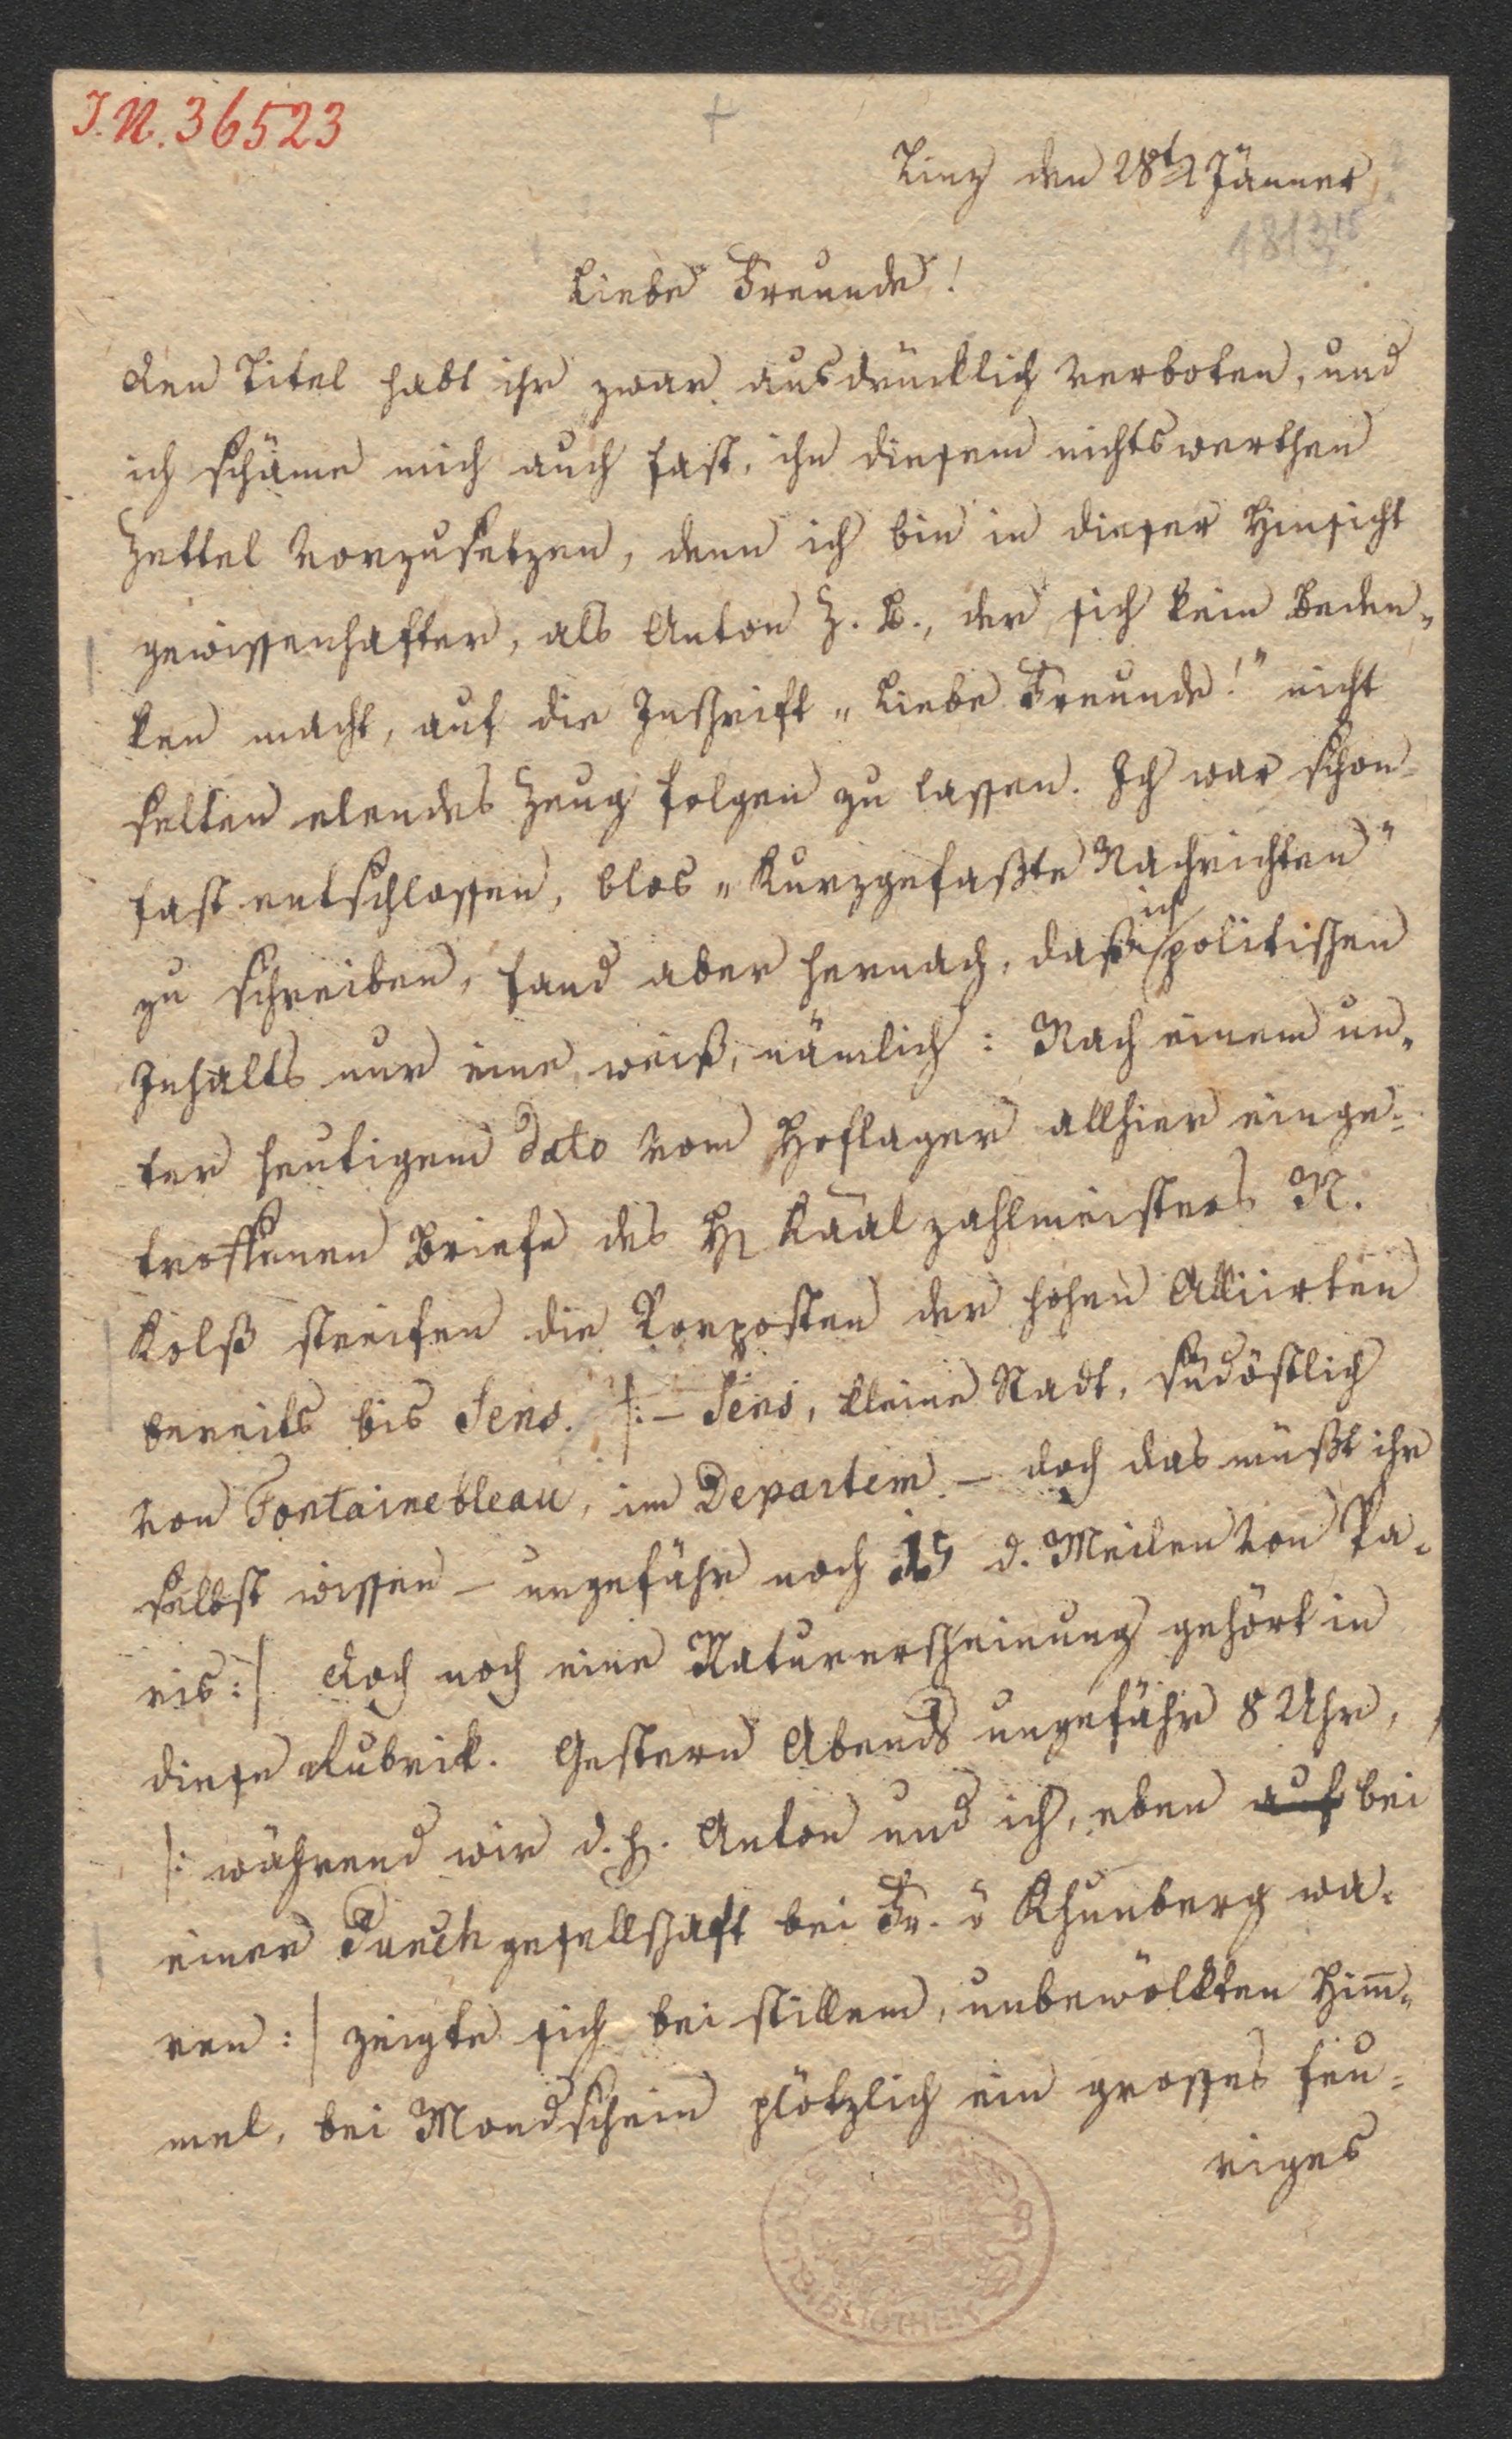 I. N. 36523
Linz den 28t Jänner
1813
Liebe Freunde!
Den Titel habt ihr zwar ausdrücklich verboten, und
ich schäme mich auch fast, ihn diesem nichtswerthen
Zettel vorzusetzen, denn ich bin in dieser Hinsicht
gewissenhafter, als Anton z. B., der sich kein Beden-
ken macht, auf die Inschrift „Liebe Freunde!" nicht
selten elendes Zeug folgen zu lassen. Ich war schon
fast entschlossen, blos „Kurzgefaßte Nachrichten"
zu schreiben, fand aber hernach, daß ich politischen
Inhalts nur eine weiß, nämlich: Nach einem un-
ter heutigem Dato vom Hoflager allhier einge-
troffenen Briefe des H Kaalzahlmeisters N.
Kolß streifen die Vorposten der hohen Alliirten
bereits bis Sens. /:– Sens, kleine Stadt, südöstlich
von Fontainebleau, im Departem. – doch das müßt ihr
selbst wissen – ungefähr noch 15 d. Meilen von Pa-
ris:/ Doch noch eine Naturerscheinung gehört in
diese Rubrik. Gestern Abends ungefähr 8 Uhr,
/: während wir d. h. Anton und ich, eben auf bei
einer Punchgesellschaft bei Fr. v Khunberg wa-
ren :/ zeigte sich bei stillem, unbewölkten Him̅-
mel, bei Mondschein plötzlich ein grosses feu-
riges
BIBLIOTHEK